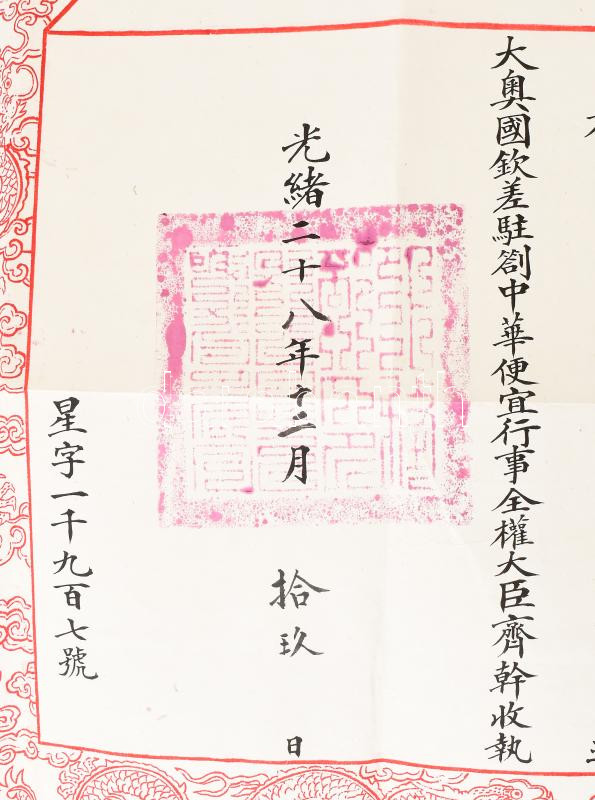 大奧國欽差駐劄中華便宜行事全權大臣齊幹收執
光緒二十八年十二月拾玖日
星字一千九百七號